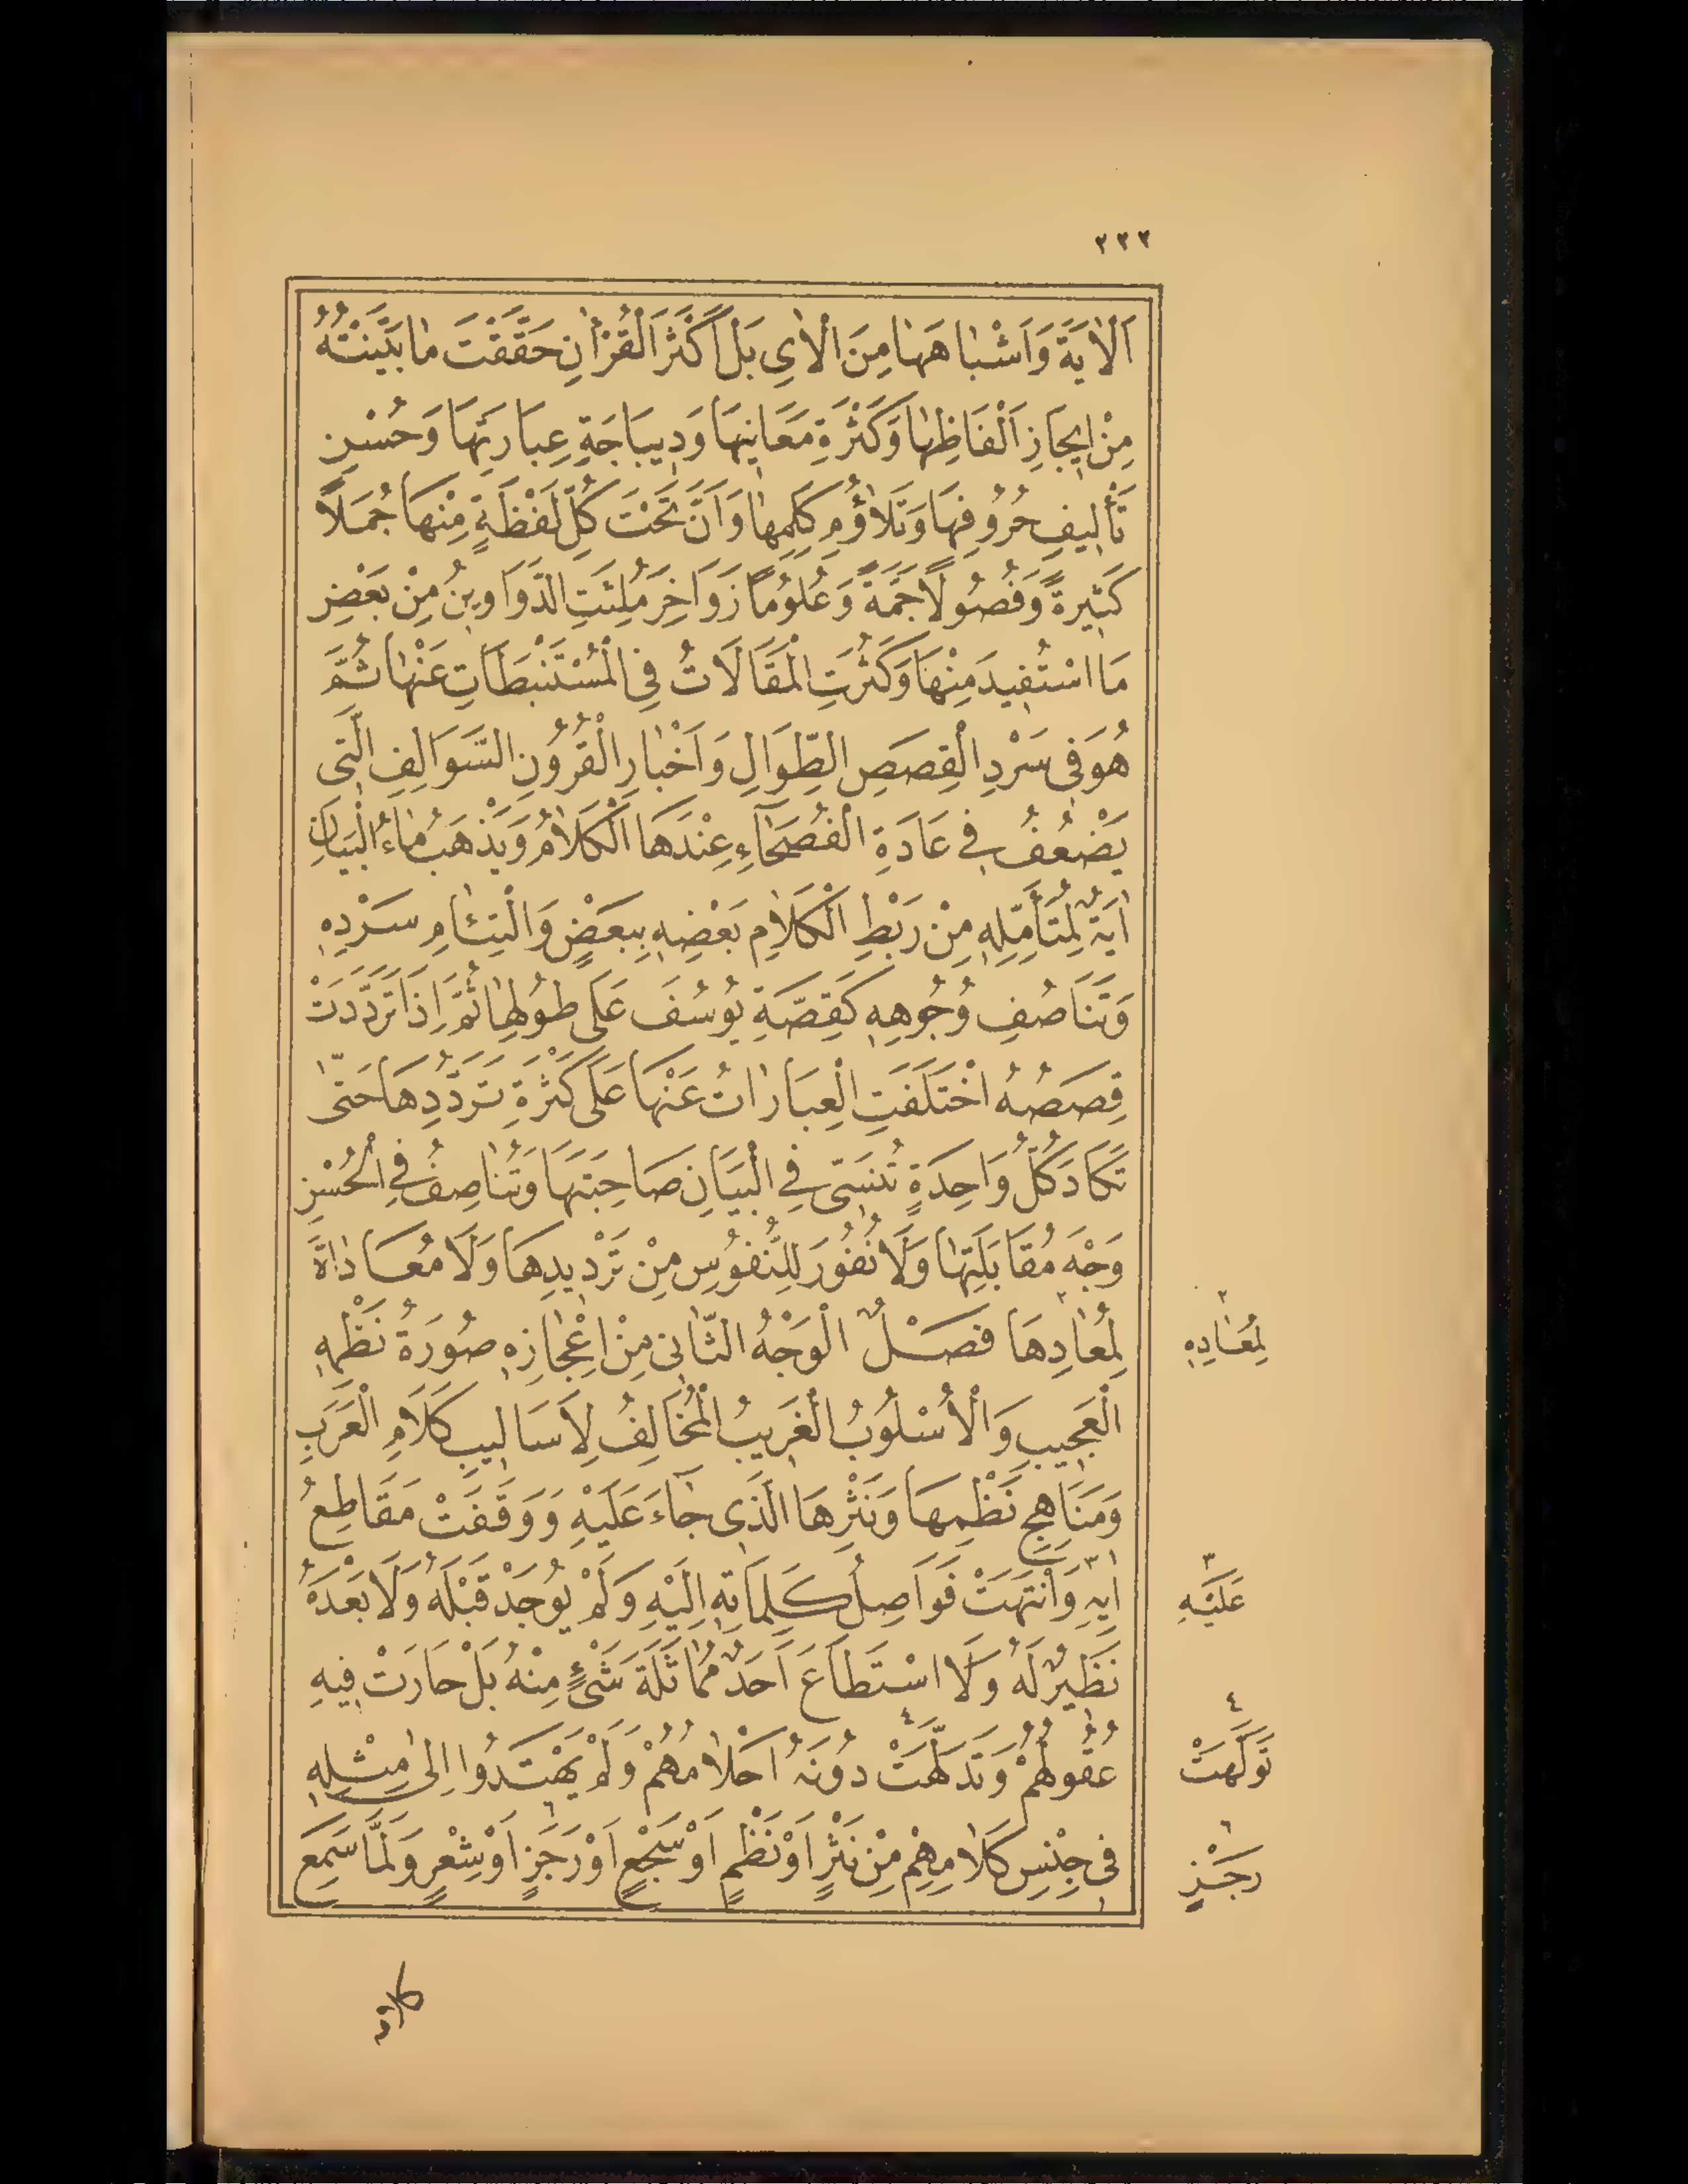 ٢٢٢
اَلْاٰيَةَ وَاَشْبَاهَهَا مِنَ الْاٰىِ بَلْ اَكْثَرَ الْقُرْاٰنِ حَقَّقْتَ مَا بَيَّنْتُهُ
مِنْ اِيجَازِ اَلْفَاظِهَا وَكَثْرَةِ مَعَانِيهَا وَدِيبَاجَةِ عِبَارَتِهَا وَحُسْنِ
تَأْلِيفِ حُرُوفِهَا وَتَلَاؤُمِ كَلِمِهَا وَاَنَّ تَحْتَ كُلِّ لَفْظَةٍ مِنْهَا جُمَلًا
كَثِيرَةً وَفُصُولًا جَمَّةً وَعُلُومًا زَوَاخِرَ مُلِئَتِ الدَّوَاوِينُ مِنْ بَعْضِ
مَا اسْتُفِيدَ مِنْهَا وَكَثُرَتِ الْمَقَالَاتُ فِي الْمُسْتَنْبَطَاتِ عَنْهَا ثُمَّ
هُوَ فِى سَرْدِ الْقِصَصِ الطِّوَالِ وَاَخْبَارِ الْقُرُونِ السَّوَالِفِ الَّتِى
يَضْعُفُ فِى عَادَةِ الْفُصَحَاءِ عِنْدَهَا الْكَلَامُ وَيَذْهَبُ مَاءُ الْبَيَانِ
اٰيَةٌ لِمُتَأَمِّلِهِ مِنْ رَبْطِ الْكَلَامِ بَعْضِهِ بِبَعْضٍ وَالْتِئَامِ سَرْدِهِ
وَتَنَاصُفِ وُجُوهِهِ كَقِصَّةِ يُوسُفَ عَلَى طُولِهَا ثُمَّ اِذَا تَرَدَّدَتْ
قِصَصُهُ اخْتَلَفَتِ الْعِبَارَاتُ عَنْهَا عَلَى كَثْرَةِ تَرَدُّدِهَا حَتّٰى
تَكَادَ كُلُّ وَاحِدَةٍ تُنَسِّى فِى الْبَيَانِ صَاحِبَتَهَا وَتُنَاصِفُ فِى الْحُسْنِ
وَجْهَ مُقَابَلَتِهَا وَلَا نُفُورَ لِلنُّفُوسِ مِنْ تَرْدِيدِهَا وَلَا مُعَادَاةَ
لِمُعَادِهَا فَصْلٌ الْوَجْهُ الثَّانِى مِنْ اِعْجَازِهِ صُورَةُ نَظْمِهِ
٢ لِمُعَادِهِ
الْعَجِيبِ وَالْاُسْلُوبُ الْغَرِيبُ الْمُخَالِفُ لِاَسَالِيبِ كَلَامِ الْعَرَبِ
وَمَنَاهِجِ نَظْمِهَا وَنَثْرِهَا الَّذِى جَاءَ عَلَيْهِ وَوَقَفَتْ مَقَاطِعُ
اٰيِهِ وَانْتَهَتْ فَوَاصِلُ كَلِمَاتِهِ اِلَيْهِ وَلَمْ يُوجَدْ قَبْلَهُ وَلَا بَعْدَهُ
٣ عَلَيْهِ
نَظِيرٌ لَهُ وَلَا اسْتَطَاعَ اَحَدٌ مُمَاثَلَةَ شَىْءٍ مِنْهُ بَلْ حَارَتْ فِيهِ
عُقُولُهُمْ وَتَدَلَّهَتْ دُونَهُ اَحْلَامُهُمْ وَلَمْ يَهْتَدُوا اِلَى مِثْلِهِ
٤ تَوَلَّهَتْ
فِى جِنْسِ كَلَامِهِمْ مِنْ نَثْرٍ اَوْ نَظْمٍ اَوْ سَجْعٍ اَوْ رَجَزٍ اَوْ شِعْرٍ وَلَمَّا سَمِعَ
٦ رَجَزٍ
كلامه